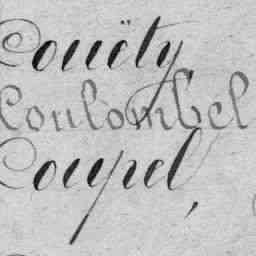 Couëty,
Coulombel
Coupel,